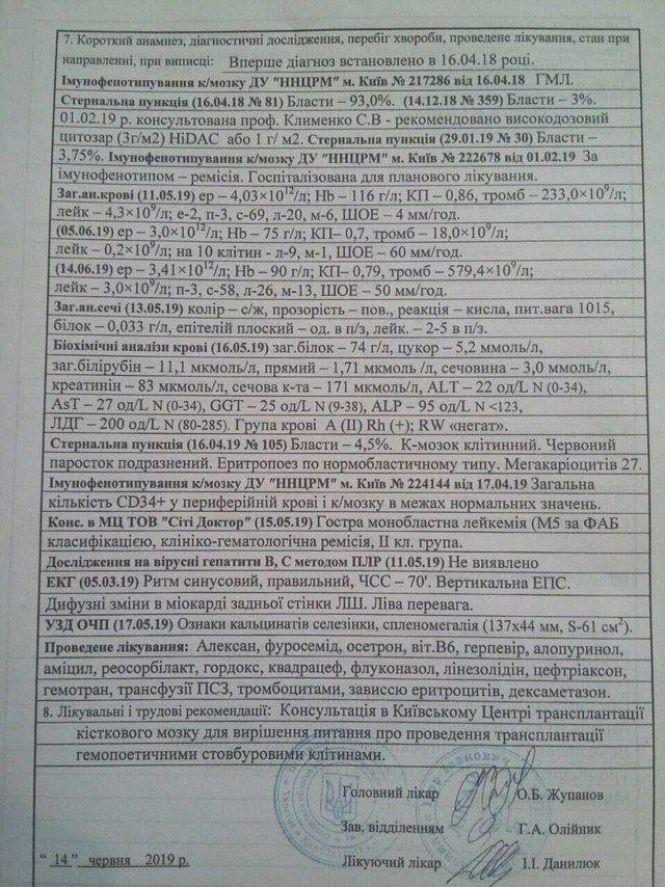 7. Короткий анамнез, діагностичні дослідження, перебіг хвороби, проведене лікування, стан при
направленні, при виписці: Вперше діагноз встановлено в 16.04.18 році.
Імунофенотипування к/мозку ДУ "ННЦРМ" м. Київ № 217286 від 16.04.18 ГМЛ.
Стернальна пункція (16.04.18 № 81) Бласти – 93,0%. (14.12.18 № 359) Бласти – 3%.
01.02.19 р. консультована проф. Клименко С.В - рекомендовано високодозовий
цитозар (3г/м2) HiDAC або 1 г/ м2. Стернальна пункція (29.01.19 № 30) Бласти –
3,75%. Імунофенотипування к/мозку ДУ "ННЦРМ" м. Київ № 222678 від 01.02.19 За
імунофенотипом – ремісія. Госпіталізована для планового лікування.
Заг.ан.крові (11.05.19) ер – 4,03×10¹²/л; Hb – 116 г/л; КП – 0,86, тромб – 233,0×10⁹/л;
лейк – 4,3×10⁹/л; е-2, п-3, с-69, л-20, м-6, ШОЕ – 4 мм/год.
(05.06.19) ер – 3,0×10¹²/л; Hb – 75 г/л; КП– 0,7, тромб – 18,0×10⁹/л;
лейк – 0,2×10⁹/л; на 10 клітин - л-9, м-1, ШОЕ – 60 мм/год.
(14.06.19) ер – 3,41×10¹²/л; Hb – 90 г/л; КП– 0,79, тромб – 579,4×10⁹/л;
лейк – 3,0×10⁹/л; п-3, с-58, л-26, м-13, ШОЕ – 50 мм/год.
Заг.ан.сечі (13.05.19) колір – с/ж, прозорість – пов., реакція – кисла, пит.вага 1015,
білок – 0,033 г/л, епітелій плоский – од. в п/з, лейк. – 2-5 в п/з.
Біохімічні аналізи крові (16.05.19) заг.білок – 74 г/л, цукор – 5,2 ммоль/л,
заг.білірубін – 11,1 мкмоль/л, прямий – 1,71 мкмоль /л, сечовина – 3,0 ммоль/л,
креатинін – 83 мкмоль/л, сечова к-та – 171 мкмоль/л, ALT – 22 од/L N (0-34),
AsT – 27 од/L N (0-34), GGT – 25 од/L N (9-38), ALP – 95 од/L N <123,
ЛДГ – 200 од/L N (80-285). Група крові А (ІІ) Rh (+); RW «негат».
Стернальна пункція (16.04.19 № 105) Бласти – 4,5%. К-мозок клітинний. Червоний
паросток подразнений. Еритропоез по нормобластичному типу. Мегакаріоцитів 27.
Імунофенотипування к/мозку ДУ "ННЦРМ" м. Київ № 224144 від 17.04.19 Загальна
кількість CD34+ у периферійній крові і к/мозку в межах нормальних значень.
Конс. в МЦ ТОВ "Сіті Доктор" (15.05.19) Гостра монобластна лейкемія (М5 за ФАБ
класифікацією, клініко-гематологічна ремісія, ІІ кл. група.
Дослідження на вірусні гепатити В, С методом ПЛР (11.05.19) Не виявлено
ЕКГ (05.03.19) Ритм синусовий, правильний, ЧСС – 70'. Вертикальна ЕПС.
Дифузні зміни в міокарді задньої стінки ЛШ. Ліва перевага.
УЗД ОЧП (17.05.19) Ознаки кальцинатів селезінки, спленомегалія (137х44 мм, S-61 см²).
Проведене лікування: Алексан, фуросемід, осетрон, віт.В6, герпевір, алопуринол,
аміцил, реосорбілакт, гордокс, квадрацеф, флуконазол, лінезолідін, цефтріаксон,
гемотран, трансфузії ПСЗ, тромбоцитами, зависсю еритроцитів, дексаметазон.
8. Лікувальні і трудові рекомендації: Консультація в Київському Центрі трансплантації
кісткового мозку для вирішення питання про проведення трансплантації
гемопоетичними стовбуровими клітинами.
Головний лікар О.Б. Жупанов
Зав. відділенням Г.А. Олійник
" 14 " червня 2019 р. Лікуючий лікар І.І. Данилюк